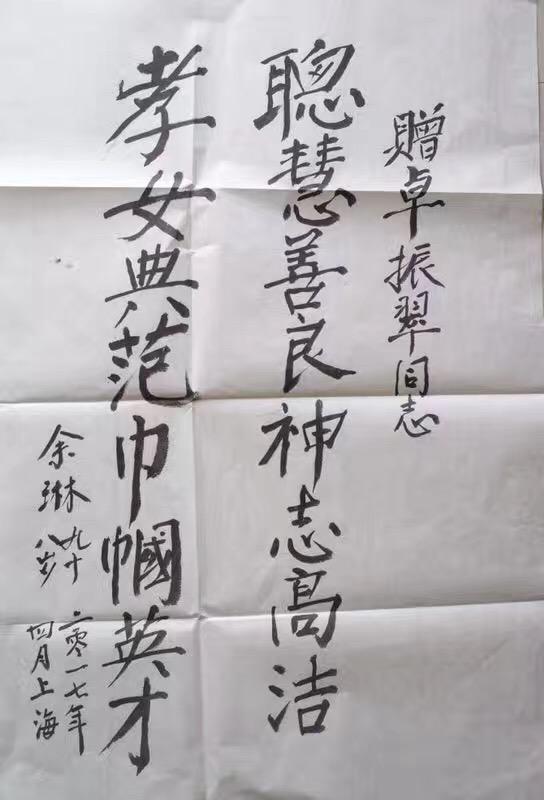 赠卓振翠同志
聪慧善良神志高洁
孝女典范巾帼英才
余琳九十
八岁
二零一七年
四月上海